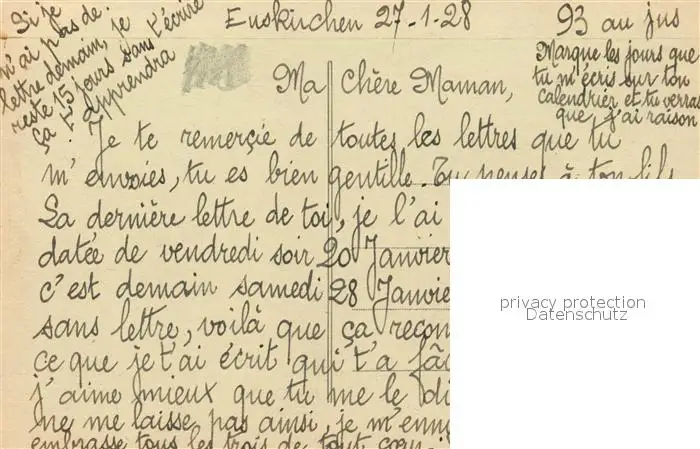 Si je
n'ai pas de
lettre demain, je
reste 15 jours sans t'écrire
ça t'apprendra
Euskirchen 27-1-28
93 au jus
Marque les jours que
tu m'écris sur ton
calendrier et tu verras
que j'ai raison
Ma Chère Maman,
Je te remerçie de toutes les lettres que tu
m'envoies, tu es bien gentille. Tu penses à ton fils
La dernière lettre de toi, je l'ai
datée de vendredi soir 20 Janvier
c'est demain samedi 28 Janvie
sans lettre, voilà que ça recom
ce que je t'ai écrit qui t'a fâc
j'aime mieux que tu me le di
ne me laisse pas ainsi, je m'ennu
embrasse tous les trois de tout cœur.
privacy protection
Datenschutz